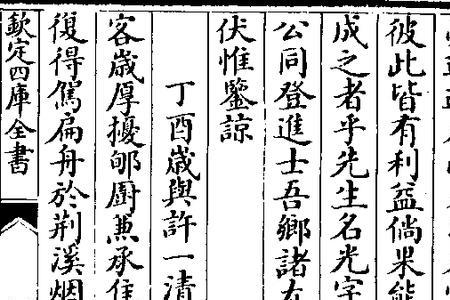 彼此皆有利益倘果能
成之者乎先生名光字
公同登進士吾鄉諸
伏惟鑒諒
丁酉歲與許一清
客歲厚擾郇廚兼承
復得駕扁舟於荆溪烟
欽定四庫全書